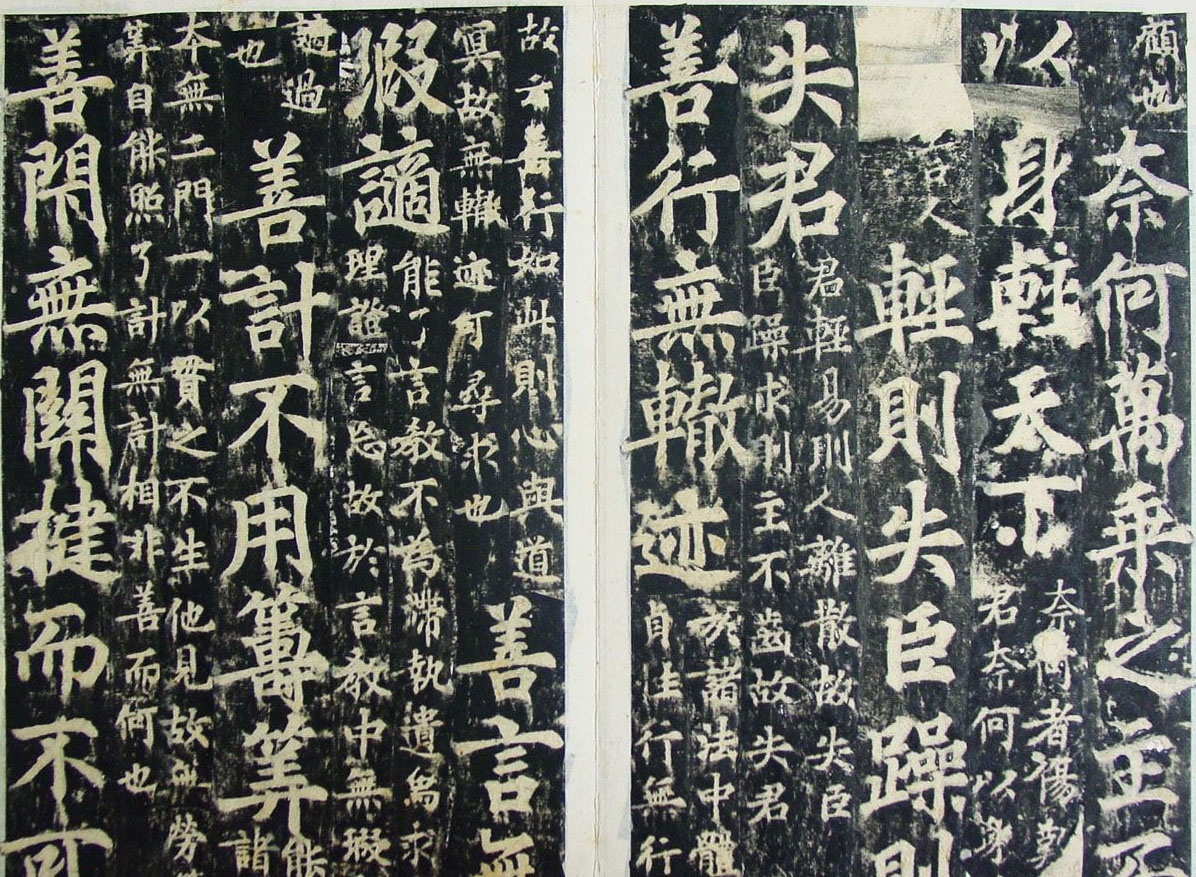 顧也
奈何萬乘之主而
以身輕天下
奈何者傷歎
君奈何以身
人
輕則失臣躁則
失君
君輕易則人離散故失臣
臣躁求則主不齒故失君
善行無轍迹
於諸法中體
自性行無行
故云善行如此則心與道
冥故無轍迹可尋求也
善言無
瑕謫
能了言教不為滯執遺為求
理證言忘故於言教中無瑕
謫過
也
善計不用籌筭
能
諸
本無二門一以貫之不生他見故無勞
筭自能照了計無計相非善而何也
善閇無關楗而不可